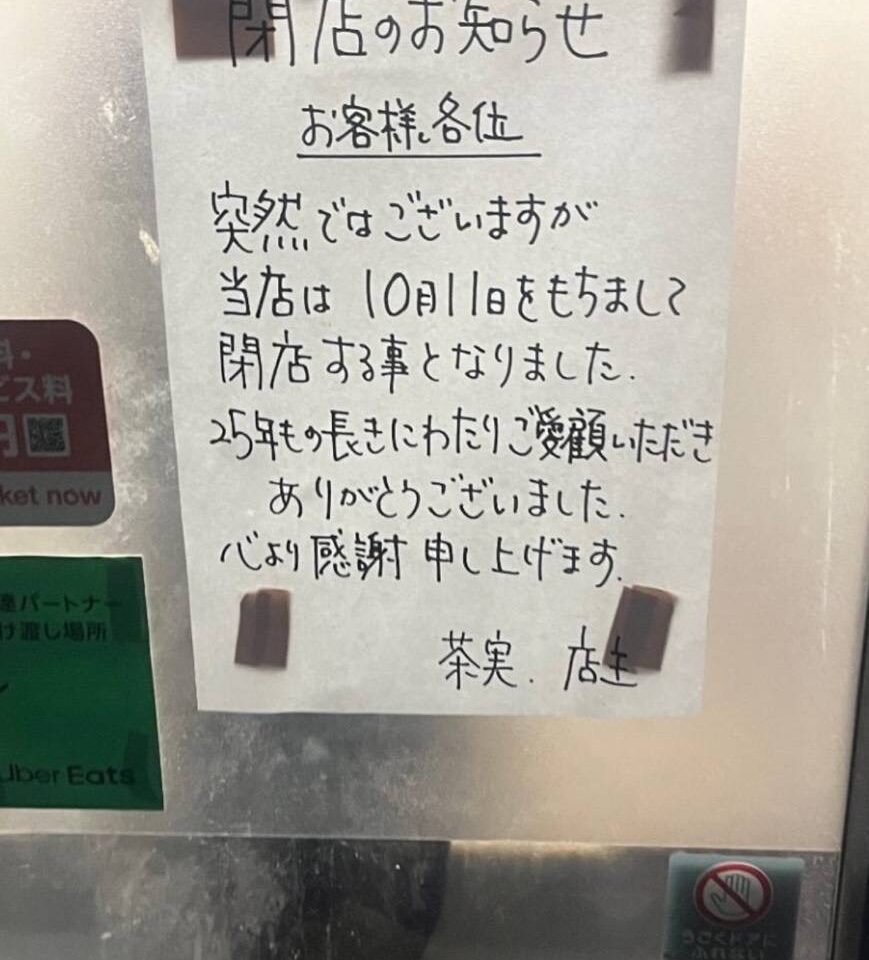 閉店のお知らせ
お客様各位
突然ではございますが
当店は 10月11日をもちまして
閉店する事となりました.
25年もの長きにわたりご愛顧いただき
ありがとうございました.
心より感謝申し上げます.
茶実. 店主
ビス料
円
ket now
達パートナー
け渡し場所
Uber Eats
うごくドアに
ふれない